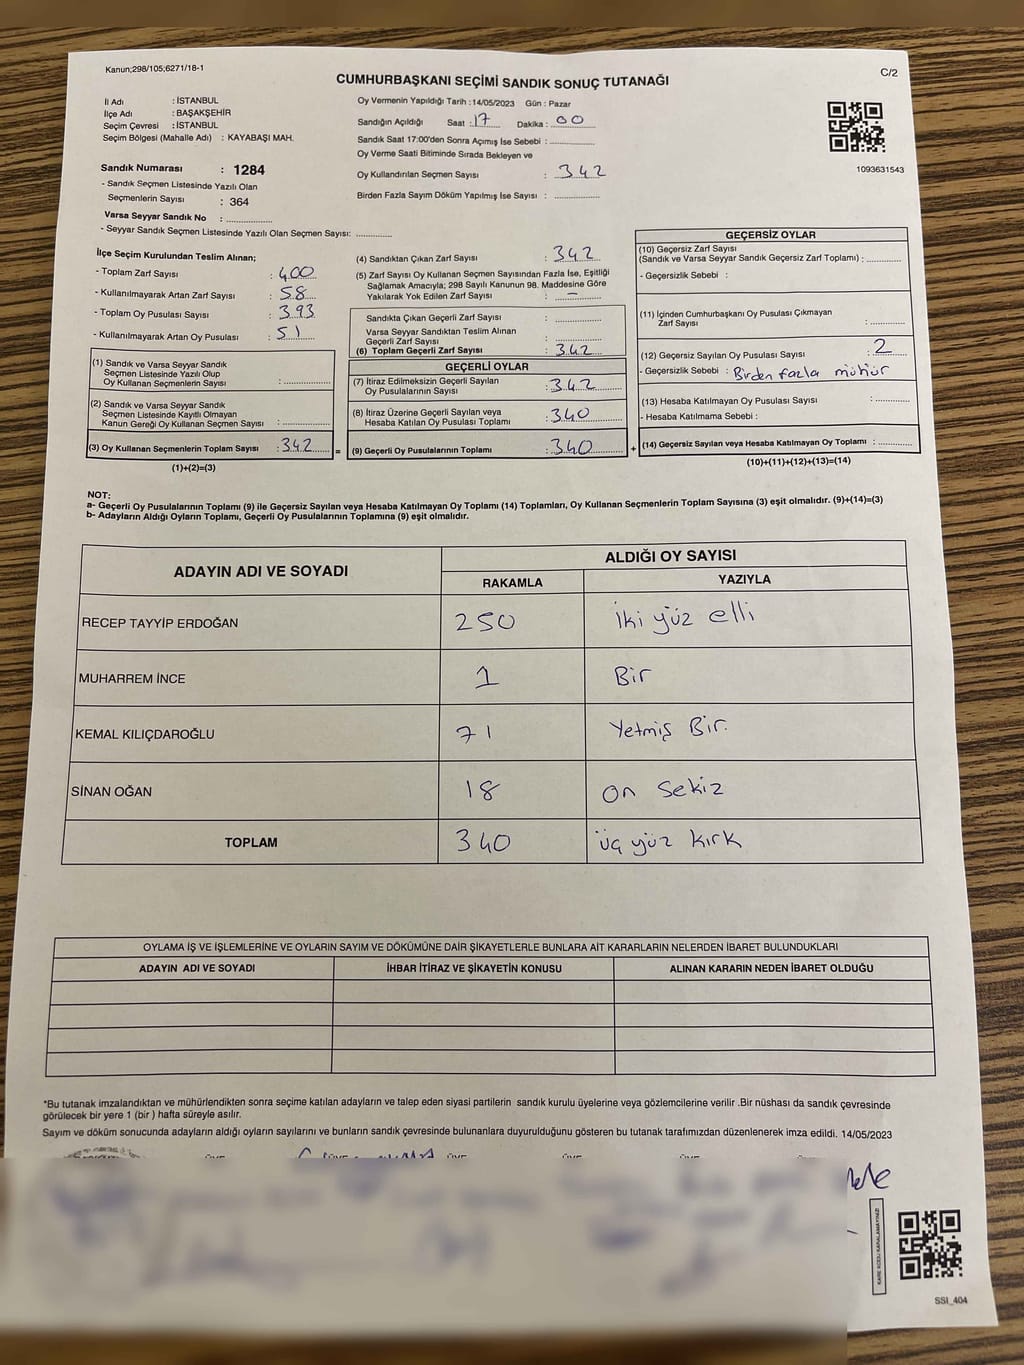 Kanun;298/105;6271/18-1
CUMHURBAŞKANI SEÇİMİ SANDIK SONUÇ TUTANAĞI
C/2
İl Adı : İSTANBUL
İlçe Adı : BAŞAKŞEHİR
Seçim Çevresi : İSTANBUL
Seçim Bölgesi (Mahalle Adı) : KAYABAŞI MAH.
Sandık Numarası : 1284
- Sandık Seçmen Listesinde Yazılı Olan
Seçmenlerin Sayısı : 364
Varsa Seyyar Sandık No : ..............
- Seyyar Sandık Seçmen Listesinde Yazılı Olan Seçmen Sayısı: ............
Oy Vermenin Yapıldığı Tarih : 14/05/2023 Gün : Pazar
Sandığın Açıldığı Saat : 17 Dakika : 00
Sandık Saat 17:00'den Sonra Açımış İse Sebebi : ..............
Oy Verme Saati Bitiminde Sırada Bekleyen ve
Oy Kullandırılan Seçmen Sayısı : 342
Birden Fazla Sayım Döküm Yapılmış İse Sayısı : ..............
1093631543
İlçe Seçim Kurulundan Teslim Alınan;
- Toplam Zarf Sayısı : 400
- Kullanılmayarak Artan Zarf Sayısı : 58
- Toplam Oy Pusulası Sayısı : 393
- Kullanılmayarak Artan Oy Pusulası : 51
(1) Sandık ve Varsa Seyyar Sandık
Seçmen Listesinde Yazılı Olup
Oy Kullanan Seçmenlerin Sayısı : ..............
(2) Sandık ve Varsa Seyyar Sandık
Seçmen Listesinde Kayıtlı Olmayan
Kanun Gereği Oy Kullanan Seçmen Sayısı : ..............
(3) Oy Kullanan Seçmenlerin Toplam Sayısı : 342 =
(1)+(2)=(3)
(4) Sandıktan Çıkan Zarf Sayısı : 342
(5) Zarf Sayısı Oy Kullanan Seçmen Sayısından Fazla İse, Eşitliği
Sağlamak Amacıyla; 298 Sayılı Kanunun 98. Maddesine Göre
Yakılarak Yok Edilen Zarf Sayısı : —
Sandıkta Çıkan Geçerli Zarf Sayısı : ..............
Varsa Seyyar Sandıktan Teslim Alınan
Geçerli Zarf Sayısı : ..............
(6) Toplam Geçerli Zarf Sayısı : 342
GEÇERLİ OYLAR
(7) İtiraz Edilmeksizin Geçerli Sayılan
Oy Pusulalarının Sayısı : 342
(8) İtiraz Üzerine Geçerli Sayılan veya
Hesaba Katılan Oy Pusulası Toplamı : 340
(9) Geçerli Oy Pusulalarının Toplamı : 340 +
GEÇERSİZ OYLAR
(10) Geçersiz Zarf Sayısı
(Sandık ve Varsa Seyyar Sandık Geçersiz Zarf Toplamı) : ..........
- Geçersizlik Sebebi :
(11) İçinden Cumhurbaşkanı Oy Pusulası Çıkmayan
Zarf Sayısı : ..........
(12) Geçersiz Sayılan Oy Pusulası Sayısı : 2
- Geçersizlik Sebebi : Birden fazla mühür
(13) Hesaba Katılmayan Oy Pusulası Sayısı : ..........
- Hesaba Katılmama Sebebi :
(14) Geçersiz Sayılan veya Hesaba Katılmayan Oy Toplamı : ..........
(10)+(11)+(12)+(13)=(14)
NOT:
a- Geçerli Oy Pusulalarının Toplamı (9) ile Geçersiz Sayılan veya Hesaba Katılmayan Oy Toplamı (14) Toplamları, Oy Kullanan Seçmenlerin Toplam Sayısına (3) eşit olmalıdır. (9)+(14)=(3)
b- Adayların Aldığı Oyların Toplamı, Geçerli Oy Pusulalarının Toplamına (9) eşit olmalıdır.
ADAYIN ADI VE SOYADI
ALDIĞI OY SAYISI
RAKAMLA YAZIYLA
RECEP TAYYİP ERDOĞAN 250 İki yüz elli
MUHARREM İNCE 1 Bir
KEMAL KILIÇDAROĞLU 71 Yetmiş Bir.
SİNAN OĞAN 18 On Sekiz
TOPLAM 340 üç yüz kırk
OYLAMA İŞ VE İŞLEMLERİNE VE OYLARIN SAYIM VE DÖKÜMÜNE DAİR ŞİKAYETLERLE BUNLARA AİT KARARLARIN NELERDEN İBARET BULUNDUKLARI
ADAYIN ADI VE SOYADI İHBAR İTİRAZ VE ŞİKAYETİN KONUSU ALINAN KARARIN NEDEN İBARET OLDUĞU
*Bu tutanak imzalandıktan ve mühürlendikten sonra seçime katılan adayların ve talep eden siyasi partilerin sandık kurulu üyelerine veya gözlemcilerine verilir .Bir nüshası da sandık çevresinde
görülecek bir yere 1 (bir ) hafta süreyle asılır.
Sayım ve döküm sonucunda adayların aldığı oyların sayılarını ve bunların sandık çevresinde bulunanlara duyurulduğunu gösteren bu tutanak tarafımızdan düzenlenerek imza edildi. 14/05/2023
KARE KODU KARALAMAYINIZ!
SSI_404